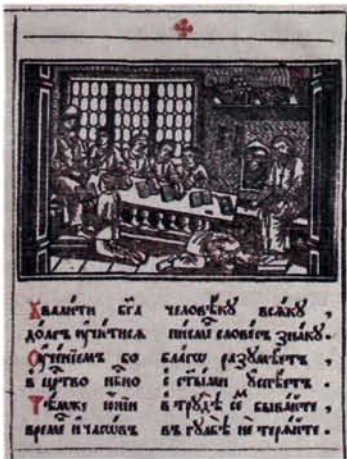 Хвали́ти бг҃а человѣ́ку всѧ́ку ,
до́лгъ ᲂу҆чи́тисѧ писме́ словесъ̀ зна́ку .
Оу҆че́нїемъ бо бла́гѡ разумѣ́етъ ,
в црⷭ҇тво нбⷭ҇но с ст҃ы́ми ᲂу҆спѣ́етъ .
Тѣ́мже ю҆́нїи в трꙋдѣ́ се́мъ быва́йте ,
вре́ме и҆ часѡ́въ въ гꙋлбѣ̀ не терѧ́йте .